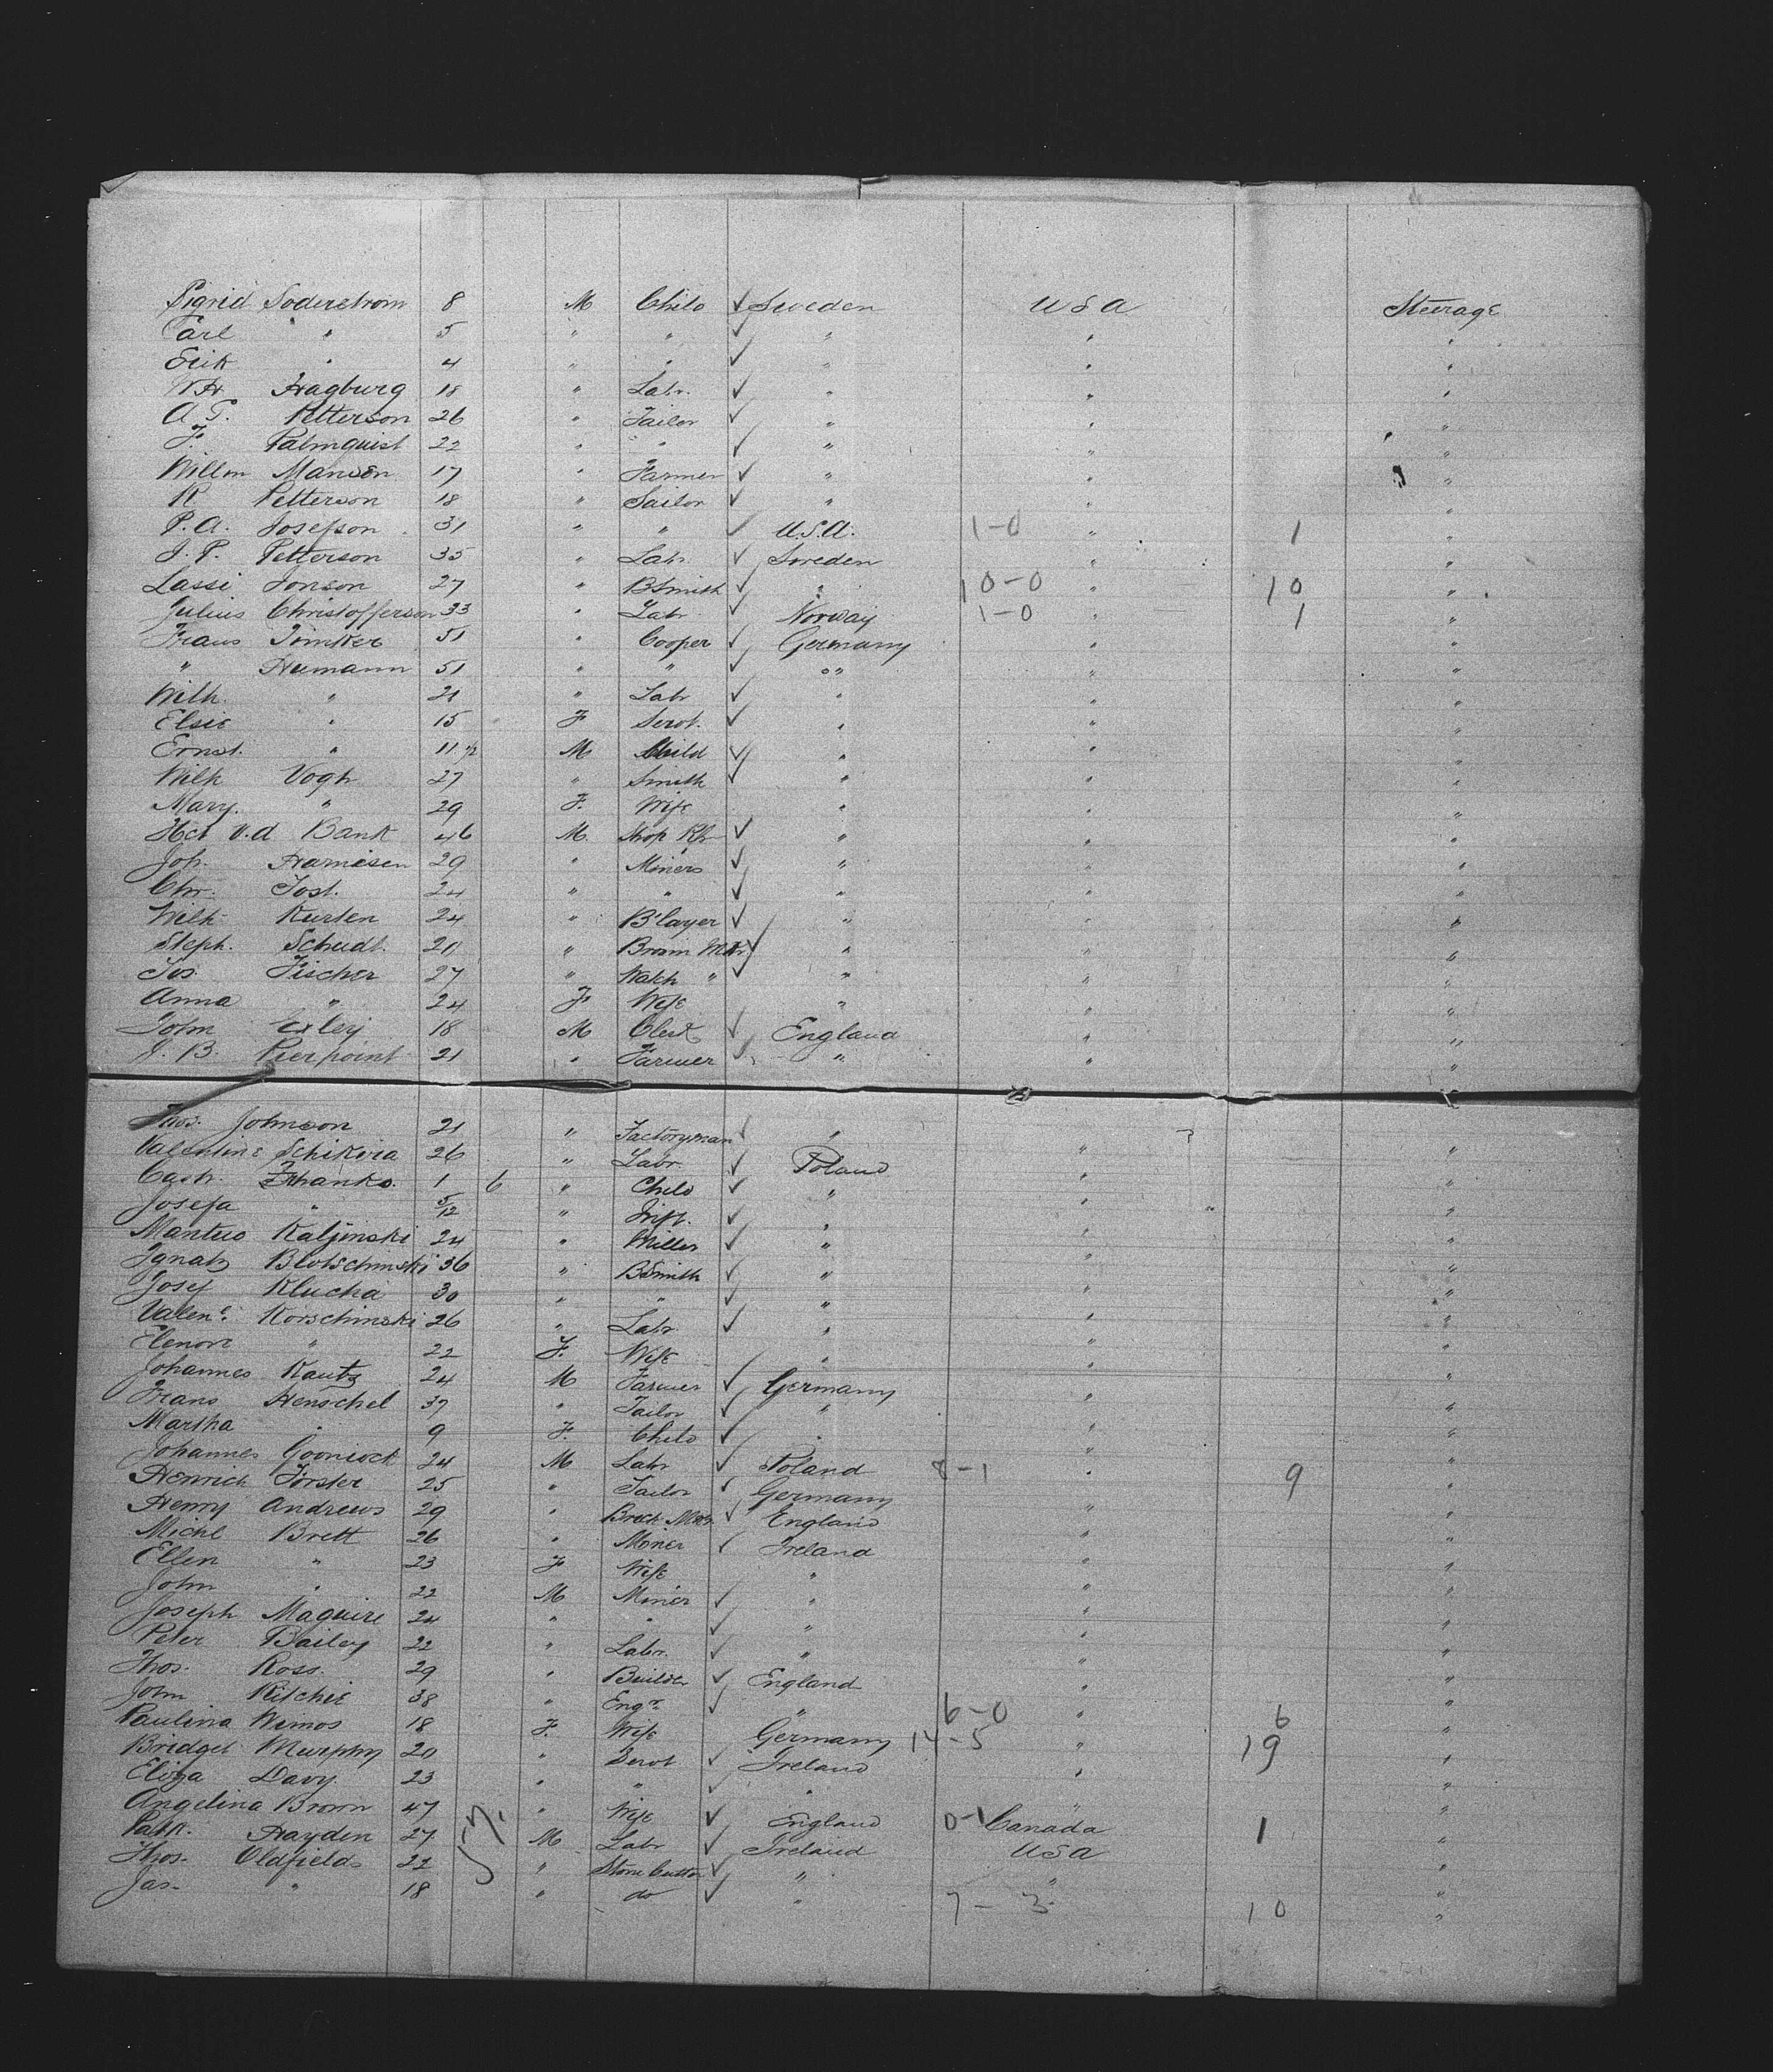 Sigrid Soderstrom 8 M Child ✓ Sweden USA Steerage
Carl " 5 " " ✓ " " "
Erik " 4 " " ✓ " " "
Hagburg 18 " Labr. ✓ " " "
A. T. Petterson 26 " Tailor ✓ " " "
F. Palmquist 22 " " ✓ " " "
Willm Manson 17 " Farmer ✓ " " "
K Petterson 18 " Sailor ✓ " " "
P. A. Josefson 31 " " ✓ U.S.A. 1-0 " 1 "
J. P. Petterson 35 " Labr. ✓ Sweden " "
Lassi Jonson 27 " BSmith ✓ " 10-0 " 10 "
Julius Christofferson 33 " Labr ✓ Norway 1-0 " 1 "
Frans Timker 51 " Cooper ✓ Germany " "
" Humann 51 " " ✓ " " "
Wilh. " 21 " Labr ✓ " " "
Elsie " 15 F Servt. ✓ " " "
Ernst. " 11 M Child ✓ " " "
Wilh Vogh 27 " Smith ✓ " " "
Mary. " 29 F. Wife " " "
v.d Bank 46 M. Shop Kpr ✓ " " "
Joh. Harmisen 29 " Miners ✓ " " "
Chr. Jost. 24 " " ✓ " " "
Wilh Kursten 24 " B'layer ✓ " " "
Steph. Scheidt. 21 " Broom Mkr ✓ " " "
Jos. Fischer 27 " Watch " ✓ " " "
Anna " 24 F Wife " " "
John Exley 18 M Clerk ✓ England " "
J. B. Pierpoint 21 " Farmer ✓ " " "
Thos. Johnson 21 " Factoryman ✓ " " "
Valentine Schikira 26 " Labr. ✓ Poland " "
Cash. Zthanks. 1 6 " Child ✓ " " "
Josefa " 5/12 " Inft. ✓ " " "
Manteus Kaljinski 24 " Miller ✓ " " "
Ignatz Blotschinski 36 " BSmith ✓ " " "
Josef Klucha 30 " " ✓ " " "
Valene. Korschinski 26 " Labr ✓ " " "
Elenore " 22 F. Wife " " "
Johannes Kautz 24 M Farmer ✓ Germany "
Frans Henschel 37 " Tailor ✓ " " "
Martha " 9 F. Child ✓ " " "
Johannes Gooniock 24 M Labr ✓ Poland 8-1 " 9 "
Heinrich Förster 25 " Tailor ✓ Germany "
Henry Andrews 29 " Brick Mkr. ✓ England " "
Michl Brett 26 " Miner ✓ Ireland " "
Ellen " 23 F Wife " " "
John " 22 M Miner ✓ " " "
Joseph Maguire 24 " " ✓ " " "
Peter Bailey 22 " Labr. ✓ " " "
Thos. Ross. 29 " Builder ✓ England " "
John Ritchie 38 " Engr. ✓ " 6-0 " 6 "
Paulina Wimos 18 F. Wife Germany 14-5 " 19 "
Bridget Murphy 20 " Servt ✓ Ireland " "
Eliza Davy. 23 " " ✓ " " "
Angelina Brown 47 " Wife ✓ England 0-1 Canada 1 "
Patk. Hayden 27 M Labr ✓ Ireland USA "
Thos. Oldfields 22 " Stone Cutter ✓ " " "
Jas. " 18 " do ✓ " 7-3 10 "